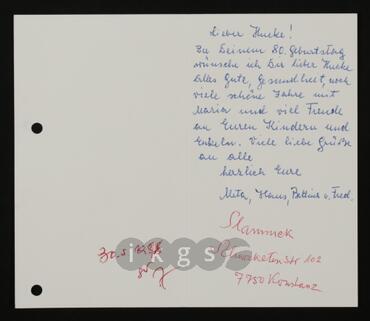 Lieber Hucke!
Zu Deinem 80. Geburtstag
wünsche ich Dir lieber Hucke
Alles Gute, Gesundheit, noch
viele schöne Jahre mit
Maria und viel Freude
an Euren Kindern und
Enkeln. Viele liebe Grüße
an alle
herzlich Eure
Mita, Hans, Bettina u. Fred.
Stammek
Schwaketenstr 102
7750 Konstanz
30.5
ikgs